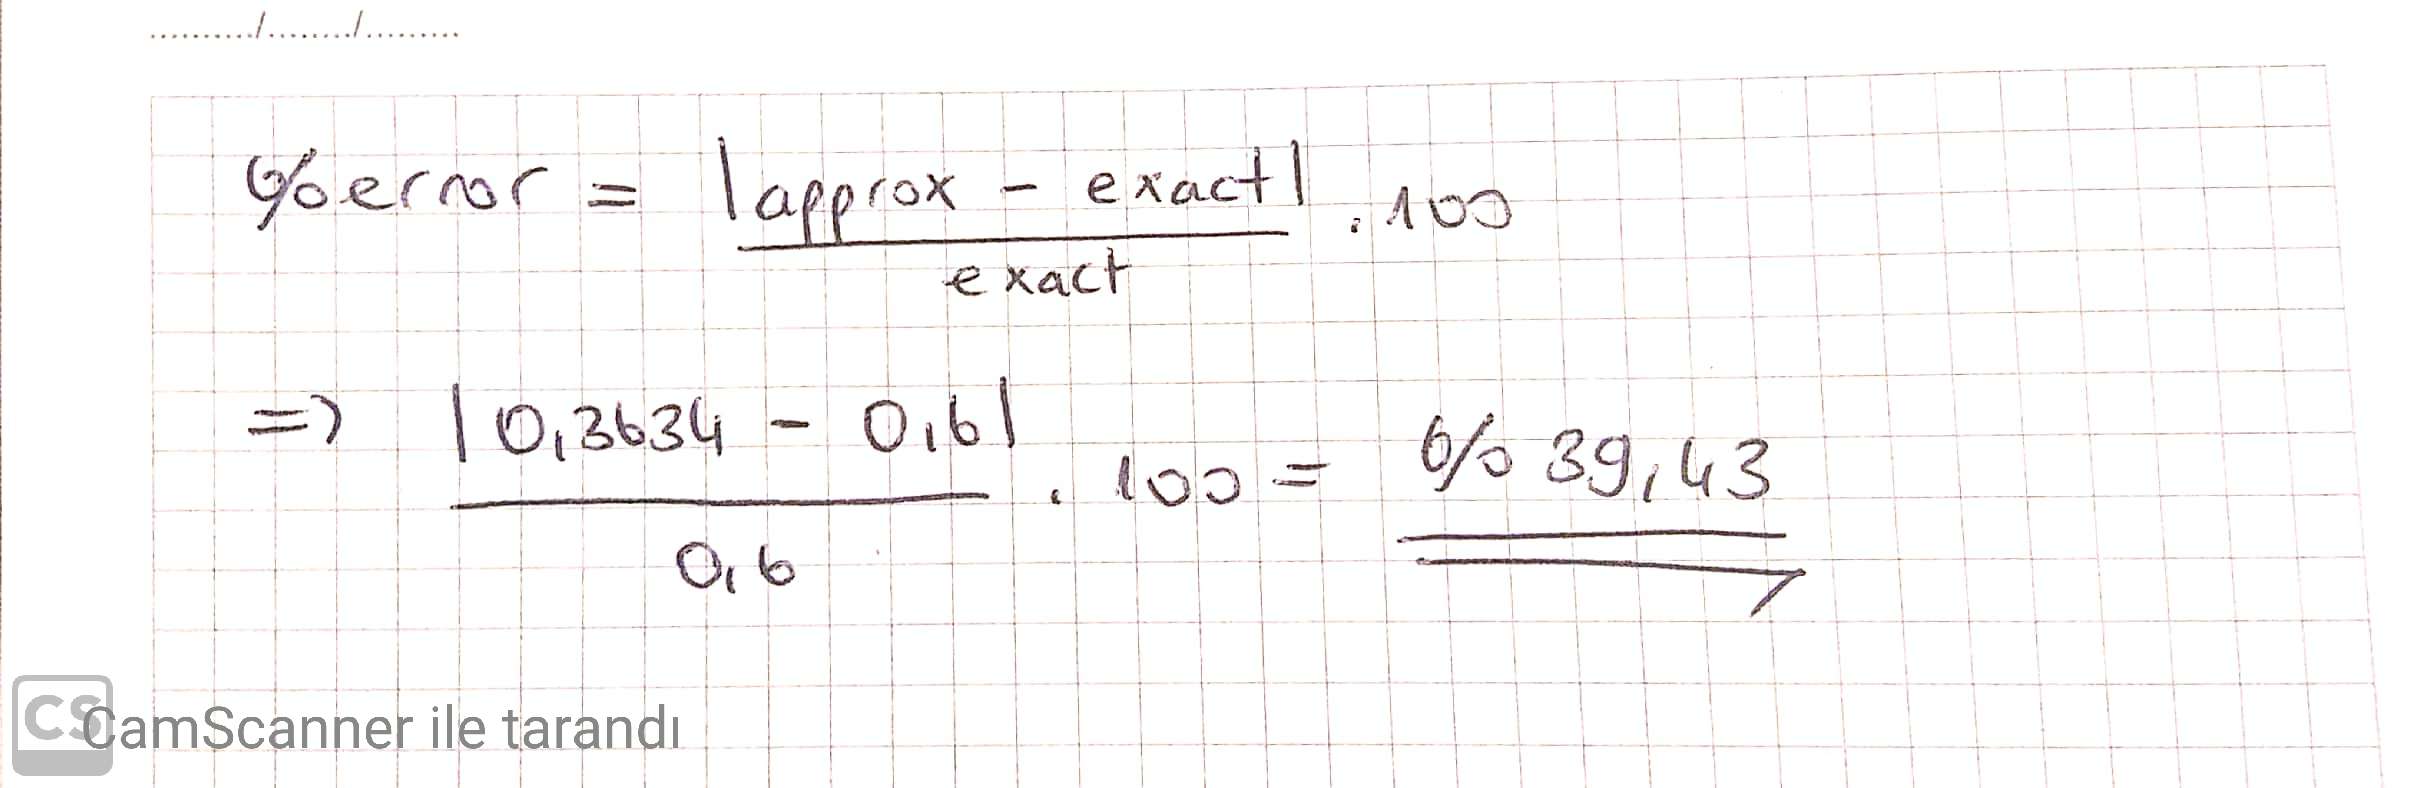 ........../........./..........
%error = |approx - exact| / exact . 100
=> |0,3634 - 0,6| / 0,6 . 100 = % 39,43
CS CamScanner ile tarandı